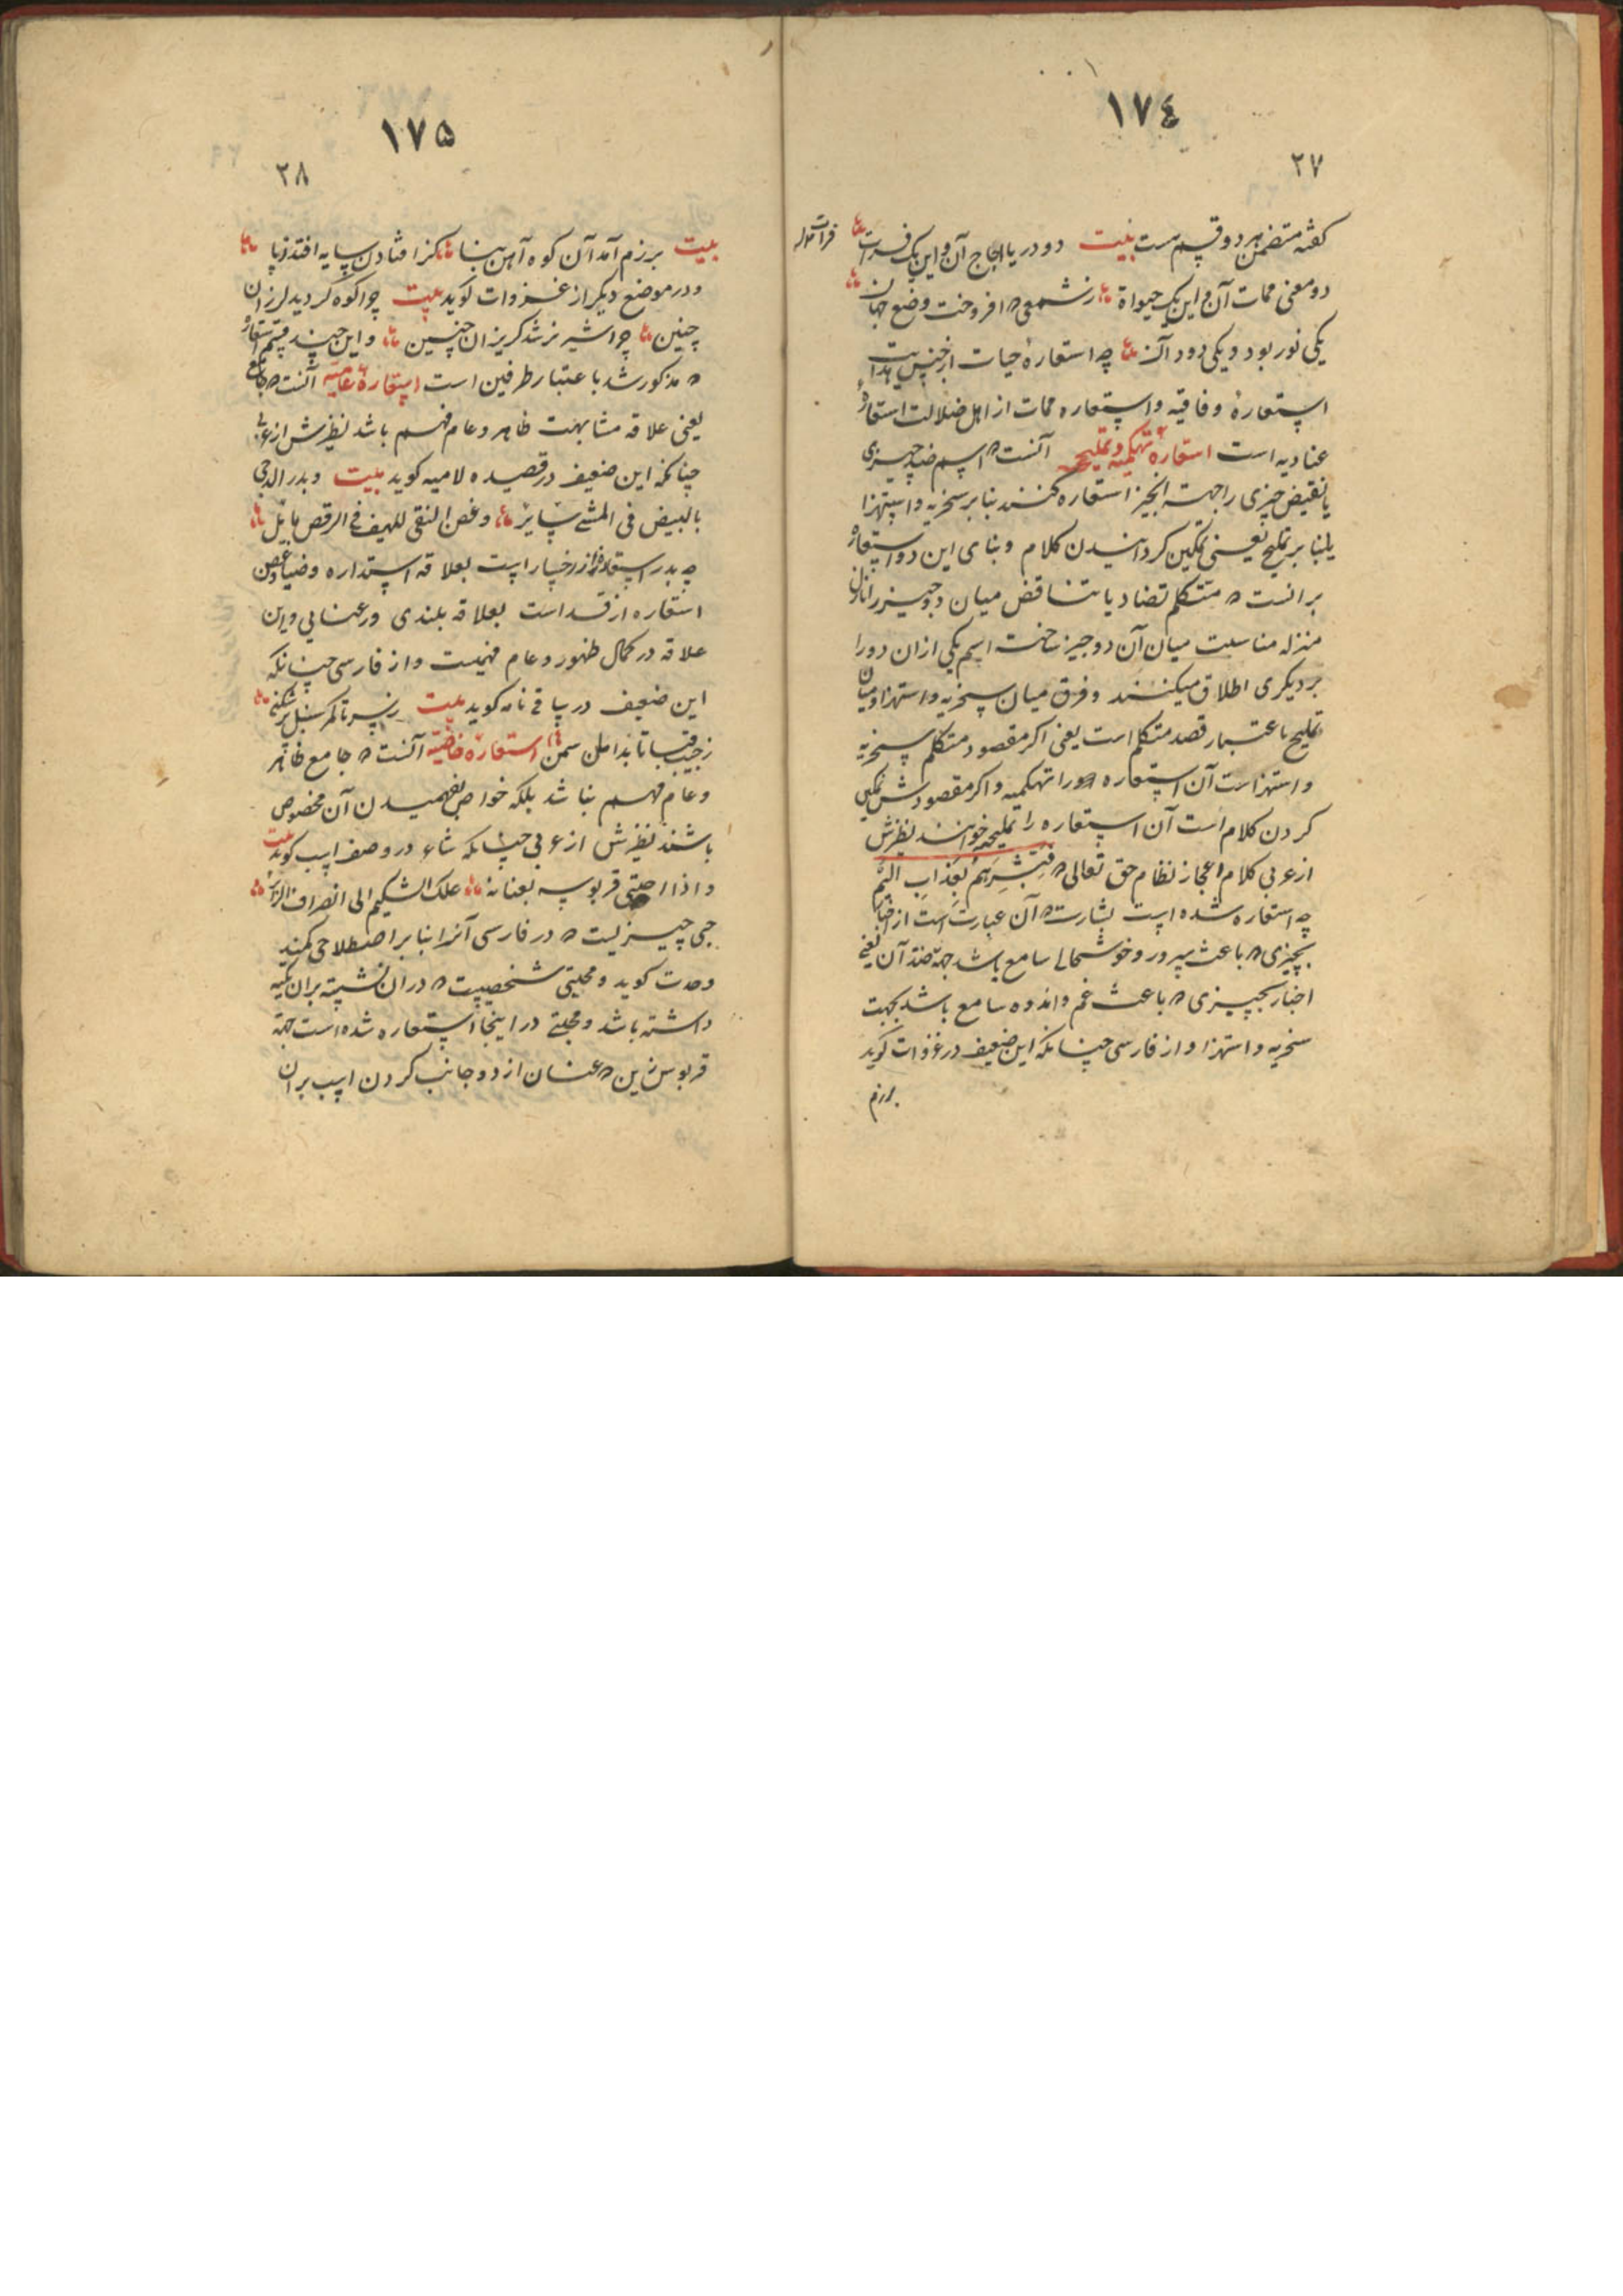 ١٧٤
٢٧
کفته متضمن هر دو قسم است بیت دو دریا اجاج آن و این یک فرات
فرات
دو معنی ممات آن و این یک حیوة ز شمعی که افروخت وضع جهان
یکی نور بود و یکی دود آن چه استعارهٔ حیات از
استعارهٔ وفاقیه و استعاره ممات از اهل ضلالت استعارهٔ
عنادیه است استعارهٔ تهکمیه و تملیحیه آنست که اسم ضد چیزی
یا نقیض چیزی را جهت انچیز استعاره کنند بنا بر سخریه و استهزا
یا بنا بر تملیح یعنی نمکین کردانیدن کلام و بنای این دو استعارهٔ
برانست که متکلم تضاد یا تناقض میان دو چیز را نازل
منزله مناسبت میان آن دو چیز ساخت اسم یکی ازان دو را
بر دیکری اطلاق میکنند و فرق میان سخریه و استهزا و میان
تملیح باعتبار قصد متکلم است یعنی اکر مقصود متکلم سخریه
و استهزاست آن استعاره را تهکمیه و اکر مقصودش نمکین
کردن کلام است آن استعاره را تملیحیه خوانند نظیرش
از عربی کلام اعجاز نظام حق تعالی که فبشرهم بعذاب الیم
چه استعاره شده است بشارت که آن عبارت است از اخبار
بچیزی که باعث سرور و خوشحالی سامع باشد جهة ضد آن یعنی
اخبار بچیزی که باعث غم و اندوه سامع باشد بجهت
سخریه و استهزا و از فارسی چنانکه این ضعیف در غزوات کوید
برزم
١٧۵
٢٨
بیت برزم آمد آن کوه آهن بنا کز افتادن سایه افتد ز پا
و در موضع دیکر از غزوات کوید بیت چرا کوه کردید لرزان
چنین چرا شیر نر شد کریزان چنین و این چند قسم استعارهٔ
که مذکور شد باعتبار طرفین است استعارهٔ عامیه آنست که جامع
یعنی علاقه مشابهت ظاهر و عام فهم باشد نظیرش از عربی
چنانکه این ضعیف در قصیده لامیه کوید بیت و بدر الدجی
بالبیض فی المشی سایر و غصن النقی للهیف فی الرقص مایل
چه بدر استعاره از رخسار است بعلاقه استداره و ضیا و غصن
استعاره از قد است بعلاقه بلندی و رعنایی و این
علاقه در کمال ظهور و عام فهمیست و از فارسی چنانکه
این ضعیف در ساقی نامه کوید بیت ز سر تا کمر سنبل پر شکن
ز جیب قبا تا بدامن سمن استعارهٔ خاصیه آنست که جامع ظاهر
و عام فهم نباشد بلکه خواص بفهمیدن آن مخصوص
باشند نظیرش از عربی چنانکه شاعر در وصف اسب کوید بیت
و اذا احتبی قربوسه بعنانه علک الشکیم الی انصراف الزائر
چیزیست که در فارسی آنرا بنا بر اصطلاحی کمند
وحدت کوید و محتبی شخصیست که در ان نشسته بران تکیه
داشته باشد و محتبی در اینجا استعاره شده است جهة
قربوس زین که عنان از دو جانب کردن اسب بران